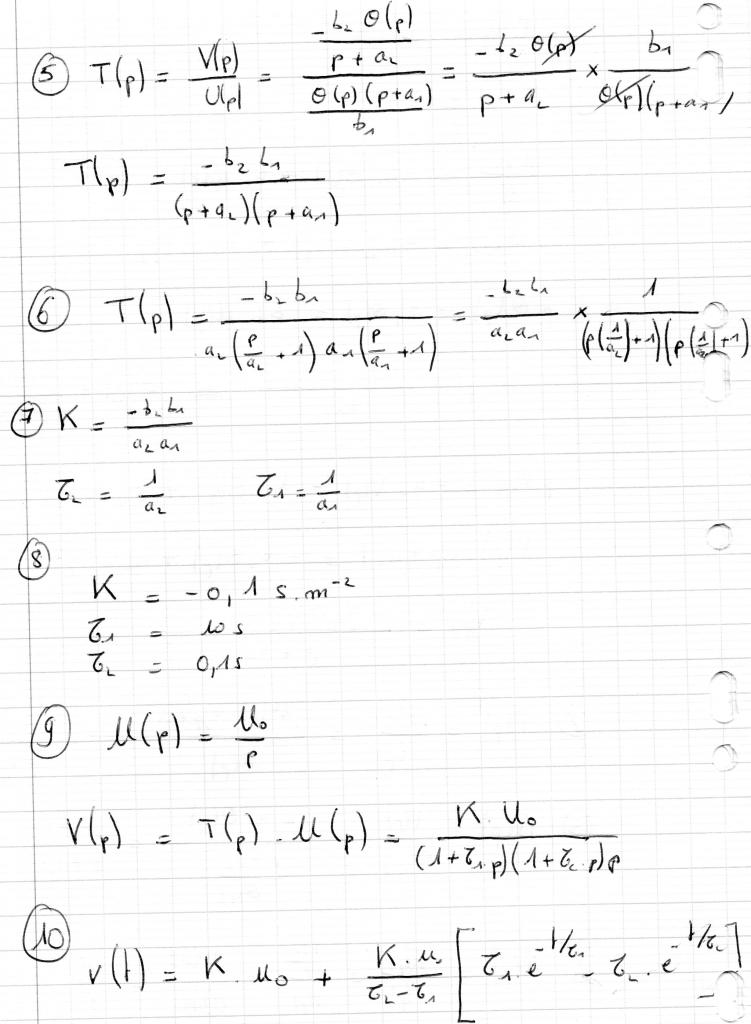 ⑤ T(p) = V(p)/U(p) = (-b₂ θ(p)/(p + a₂)) / (θ(p)(p+a₁)/b₁) = -b₂ θ(p)/(p + a₂) × b₁/(θ(p)(p+a₁))
T(p) = -b₂ b₁/((p+a₂)(p+a₁))
⑥ T(p) = -b₂ b₁/(a₂(p/a₂ + 1) a₁(p/a₁ + 1)) = -b₂ b₁/(a₂ a₁) × 1/((p(1/a₂)+1)(p(1/a₁)+1))
⑦ K = -b₂ b₁/(a₂ a₁)
τ₂ = 1/a₂ τ₁ = 1/a₁
⑧
K = -0,1 s.m⁻²
τ₁ = 10 s
τ₂ = 0,1s
⑨ U(p) = U₀/p
V(p) = T(p) . U(p) = K. U₀/((1+τ₁.p)(1+τ₂.p)p)
⑩
v(t) = K . u₀ + K. u₀/(τ₂-τ₁) [τ₁.e^(-t/τ₁) - τ₂.e^(-t/τ₂)]